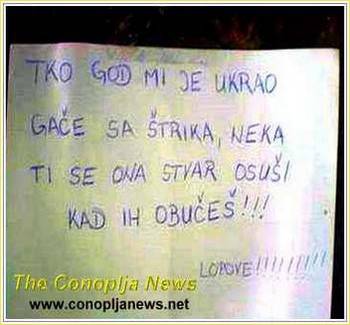 TKO GOD MI JE UKRAO
GAČE SA ŠTRIKA, NEKA
TI SE ONA STVAR OSUŠI
KAD IH OBUČEŠ!!!
LOPOVE!!!!!!!!!!
The Conoplja News
www.conopljanews.net